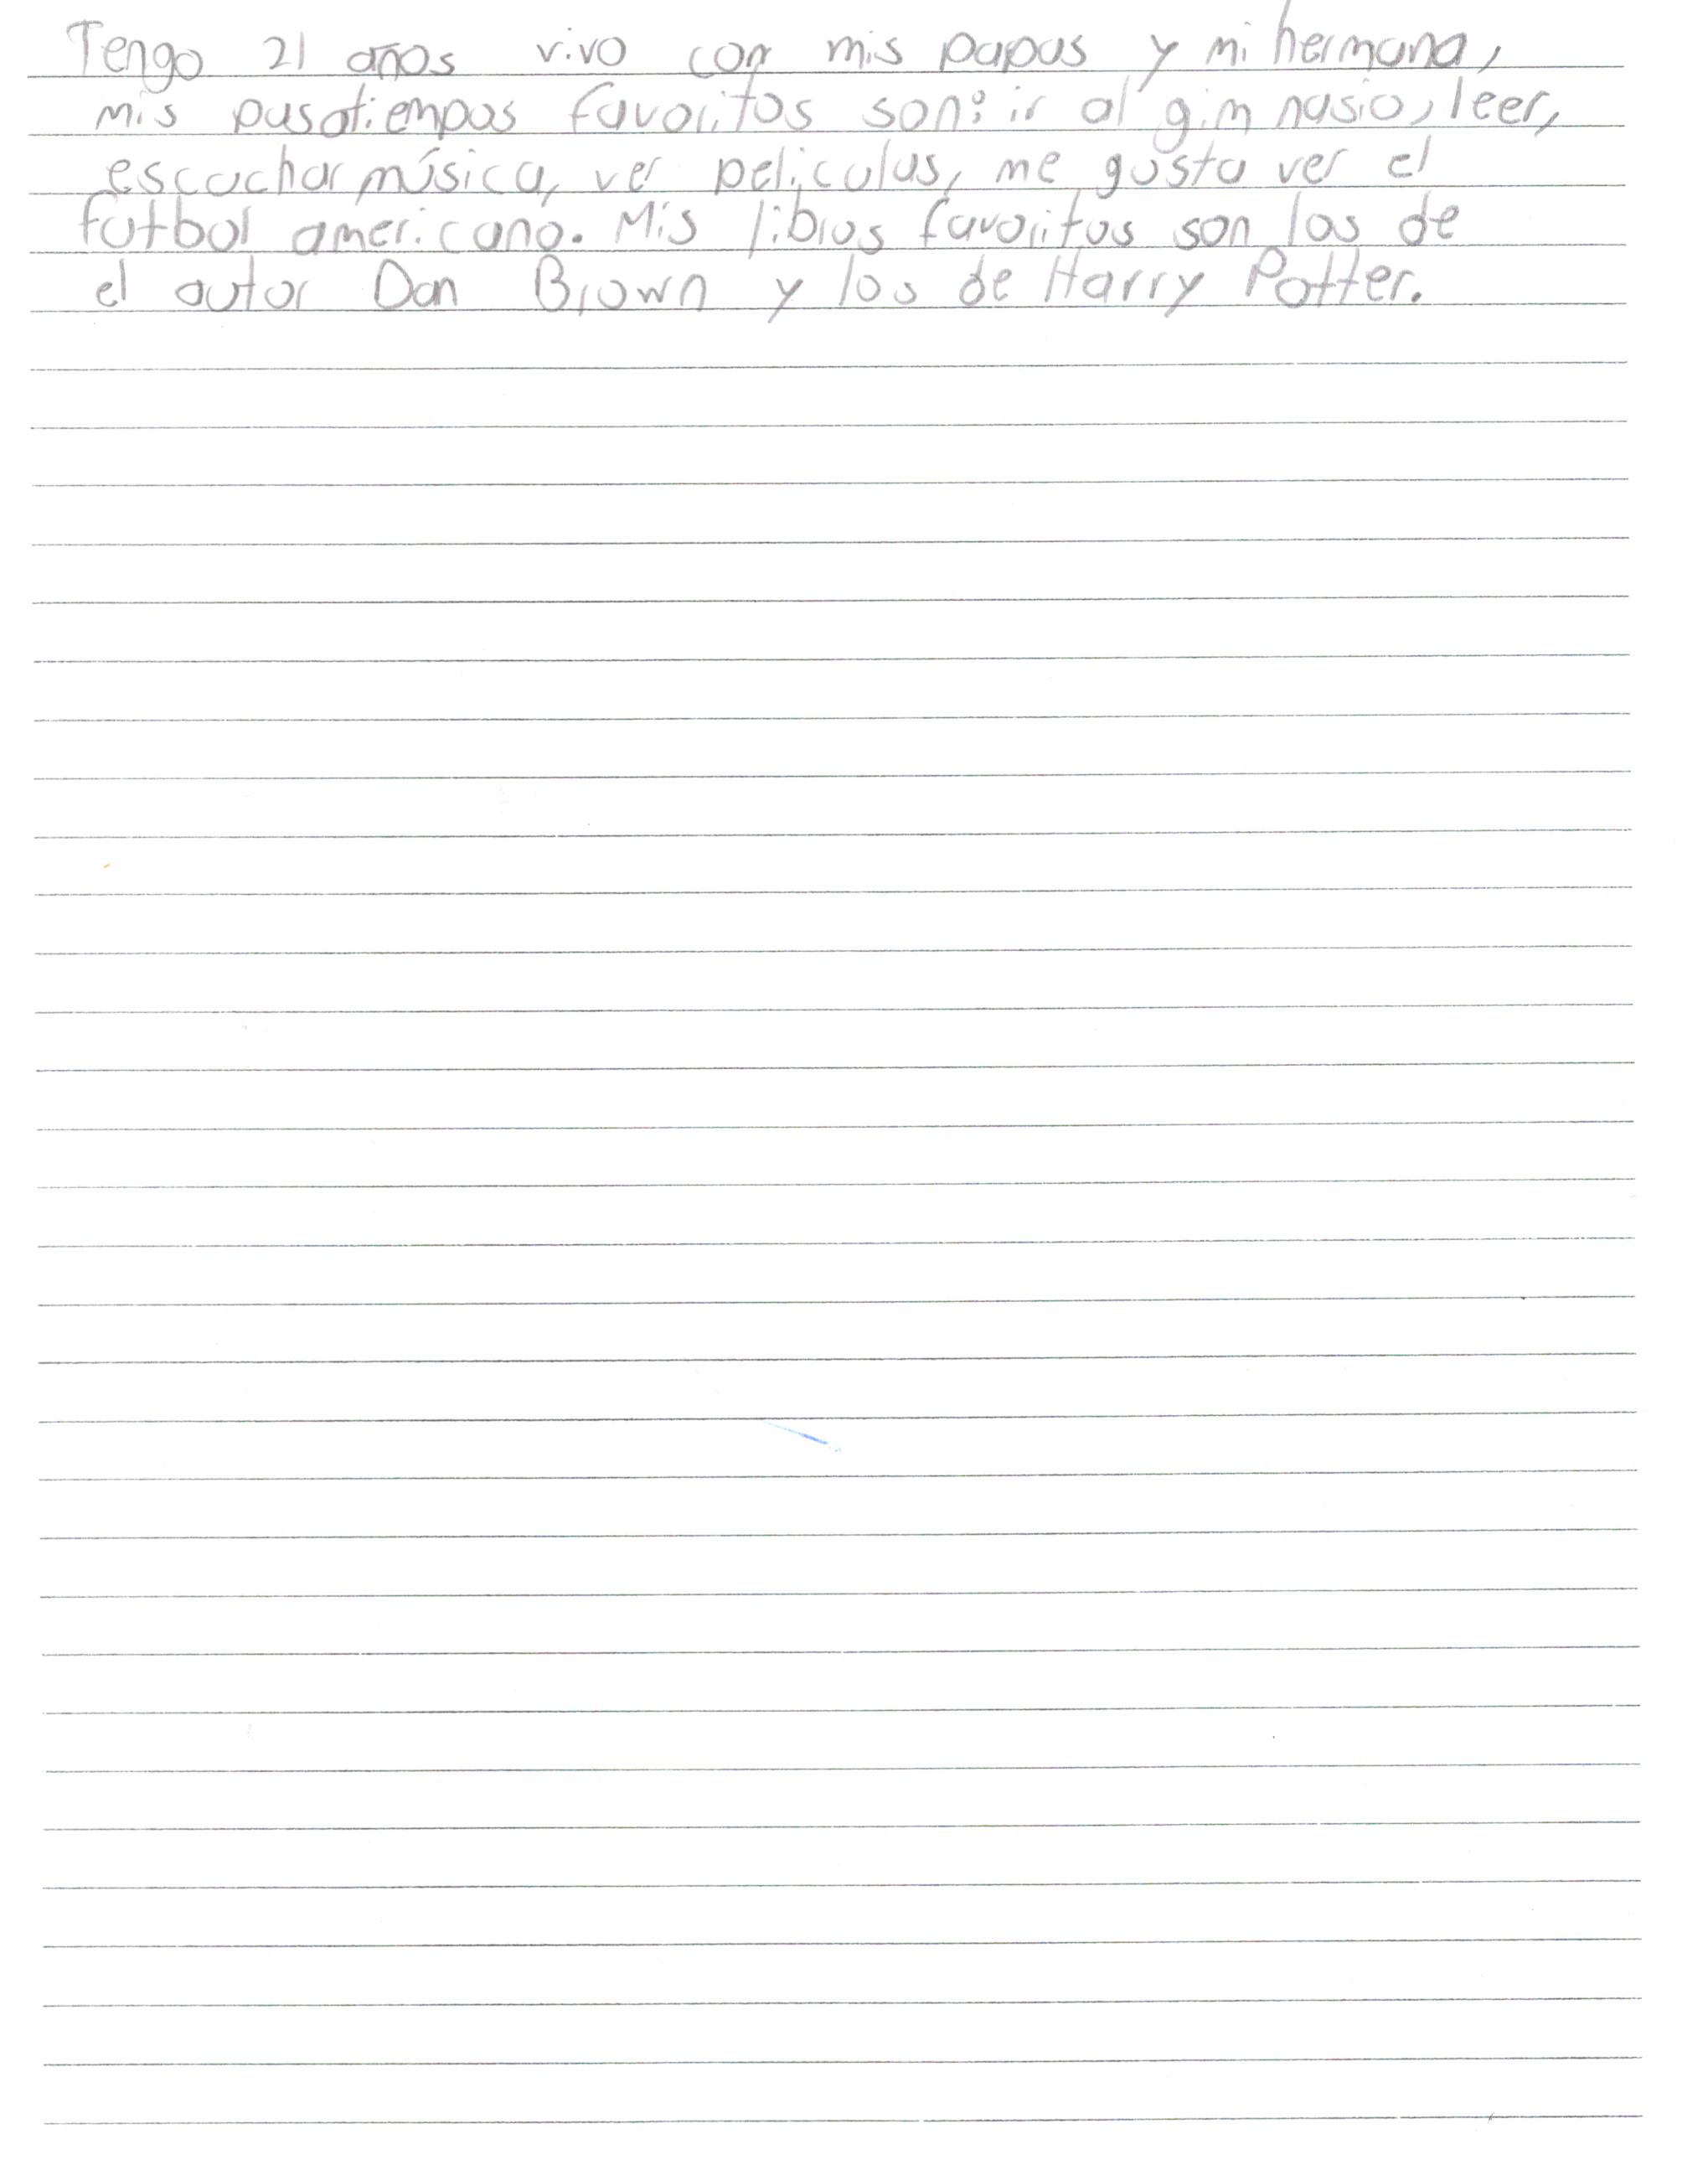 Tengo 21 años vivo con mis papas y mi hermana,
mis pasatiempos favoritos son: ir al gimnasio, leer,
escuchar música, ver peliculas, me gusta ver el
futbol americano. Mis libros favoritos son los de
el autor Dan Brown y los de Harry Potter.